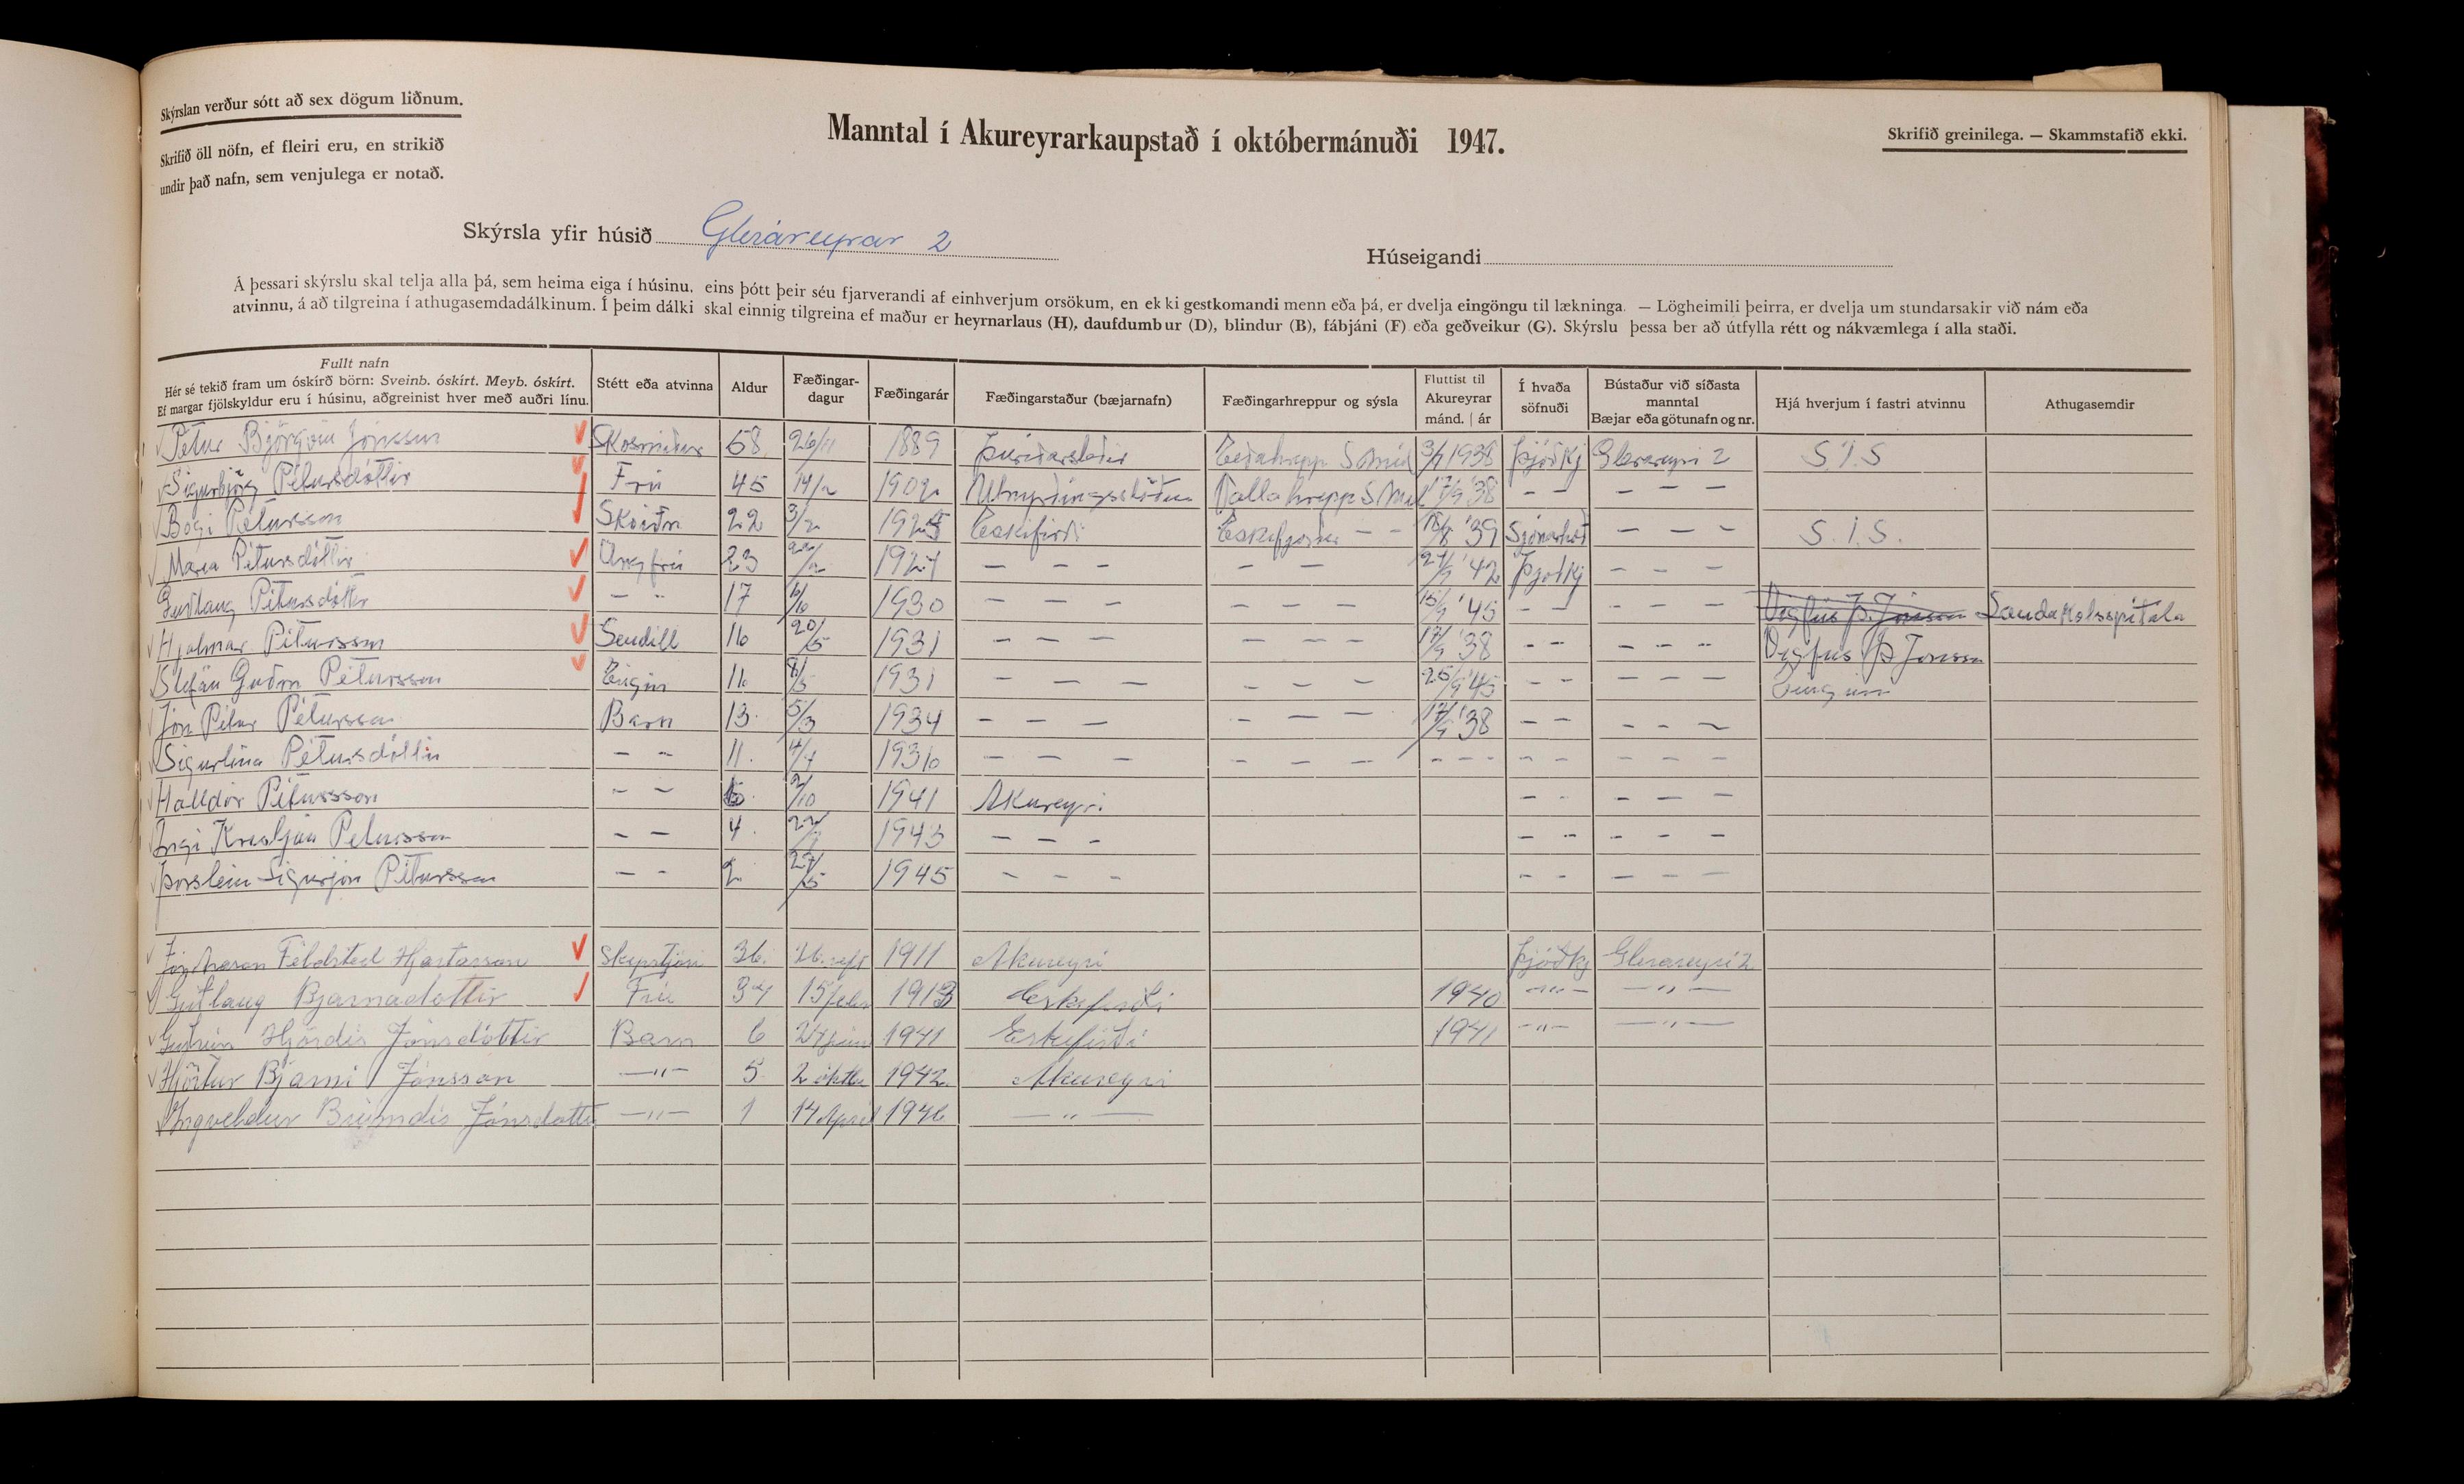 Skýrslan verður sótt að sex dögum liðnum.
Skrifið öll nöfn, ef fleiri eru, en strikið
undir það nafn, sem venjulega er notað.
Manntal í Akureyrarkaupstað í októbermánuði 1947.
Skrifið greinilega. — Skammstafið ekki.
Skýrsla yfir húsið Gleráreyrar 2
Húseigandi
Á þessari skýrslu skal telja alla þá, sem heima eiga í húsinu, eins þótt þeir séu fjarverandi af einhverjum orsökum, en ekki gestkomandi menn eða þá, er dvelja eingöngu til lækninga. — Lögheimili þeirra, er dvelja um stundarsakir við nám eða
atvinnu, á að tilgreina í athugasemdadálkinum. Í þeim dálki skal einnig tilgreina ef maður er heyrnarlaus (H), daufdumbur (D), blindur (B), fábjáni (F) eða geðveikur (G). Skýrslu þessa ber að útfylla rétt og nákvæmlega í alla staði.
Fullt nafn Hér sé tekið fram um óskírð börn: Sveinb. óskírt. Meyb. óskírt. Ef margar fjölskyldur eru í húsinu, aðgreinist hver með auðri línu. Stétt eða atvinna Aldur Fæðingar-dagur Fæðingarár Fæðingarstaður (bæjarnafn) Fæðingarhreppur og sýsla Fluttist til Akureyrar mánd. | ár Í hvaða söfnuði Bústaður við síðasta manntal Bæjar eða götunafn og nr. Hjá hverjum í fastri atvinnu Athugasemdir
Pétur Björgvin Jónsson Skósmiður 58 26/11 1889 Þuríðarstaðir Eiðahrepp S Múl 3/9 1938 Þjóðkj Glerareyri 2 S.Í.S
Sigurbjörg Pétursdóttir Frú 45 14/2 1902 Vallahrepp S Múl 17/9 '38 – – – – –
Bogi Pétursson Skóiðn 22 3/2 1925 Eskifirði Eskifjorður – – '39 Sjónarhæð – – – S.Í.S.
Maria Pétursdóttir Ungfrú 23 – – – – – '42 Þjoðkj – – –
Guðlaug Pétursdóttir – – 17 6/10 1930 – – – – – – 15/9 '45 – – – – – Vigfús Þ. Jónsson
Hjalmar Pétursson Sendill 16 20/5 1931 – – – – – – 17/9 '38 – – – – – Vigfús Þ Jonsson
Stefán Guðm Pétursson Engin 16 8/5 1931 – – – – – – 25/9 '45 – – – – – Engin
Jón Pétur Pétursson Barn 13 5/3 1934 – – – – – – 17/9 '38 – – – – –
Sigurlína Pétursdóttir – – 11. 4/7 1936 – – – – – – – – – – – – – –
Halldór Pétursson – – 2/10 1941 Akureyri – – – – –
Ingi Kristján Pétursson – – 4 1943 – – – – – – – –
Þorstein Sigurjón Pétursson – – 2 27/5 1945 – – – – – – – –
Jón Arason Hjartarson Skipstjóri 36. 26. sept 1911 Akureyri Þjóðkj Glerareyri 2
Guðlaug Bjarnadóttir Frú 34 15 febr 1913 Eskifirði 1940 –"– –"–
Guðrún Hjördís Jónsdóttir Barn 6 1941 Eskifirði 1941 –"– –"–
Hjörtur Bjarni Jónsson –"– 5 2 októb 1942 Akureyri
Ingveldur Brimdís Jónsdóttir –"– 1 14 Apríl 1946 –"–